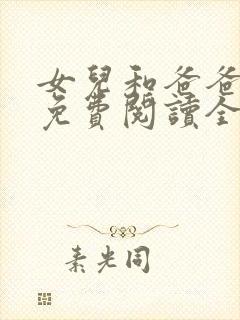 女兒和爸爸
免費閱讀全
素光同